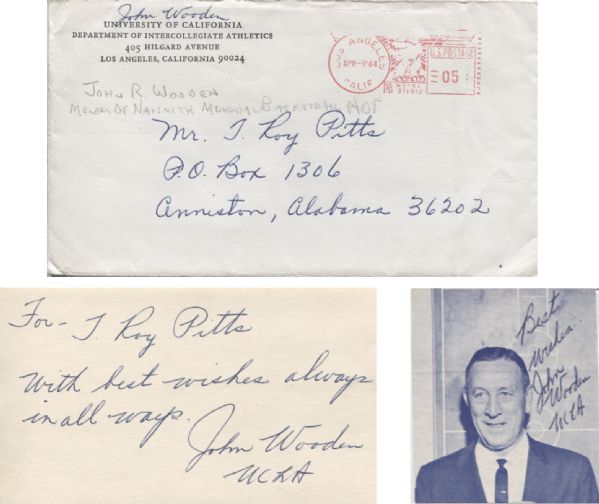 John Wooden
UNIVERSITY OF CALIFORNIA
DEPARTMENT OF INTERCOLLEGIATE ATHLETICS
405 HILGARD AVENUE
LOS ANGELES, CALIFORNIA 90024
LOS ANGELES
APR-9'64
CALIF.
U.S. POSTAGE
05
PB METER
JOHN R. WOODEN
MEMBER OF NAISMITH MEMORIAL BASKETBALL HOF
Mr. T. Roy Pitts
P.O. Box 1306
Anniston, Alabama 36202
For- T. Roy Pitts
With best wishes always
in all ways.
John Wooden
UCLA
Best
Wishes
John
Wooden
UCLA